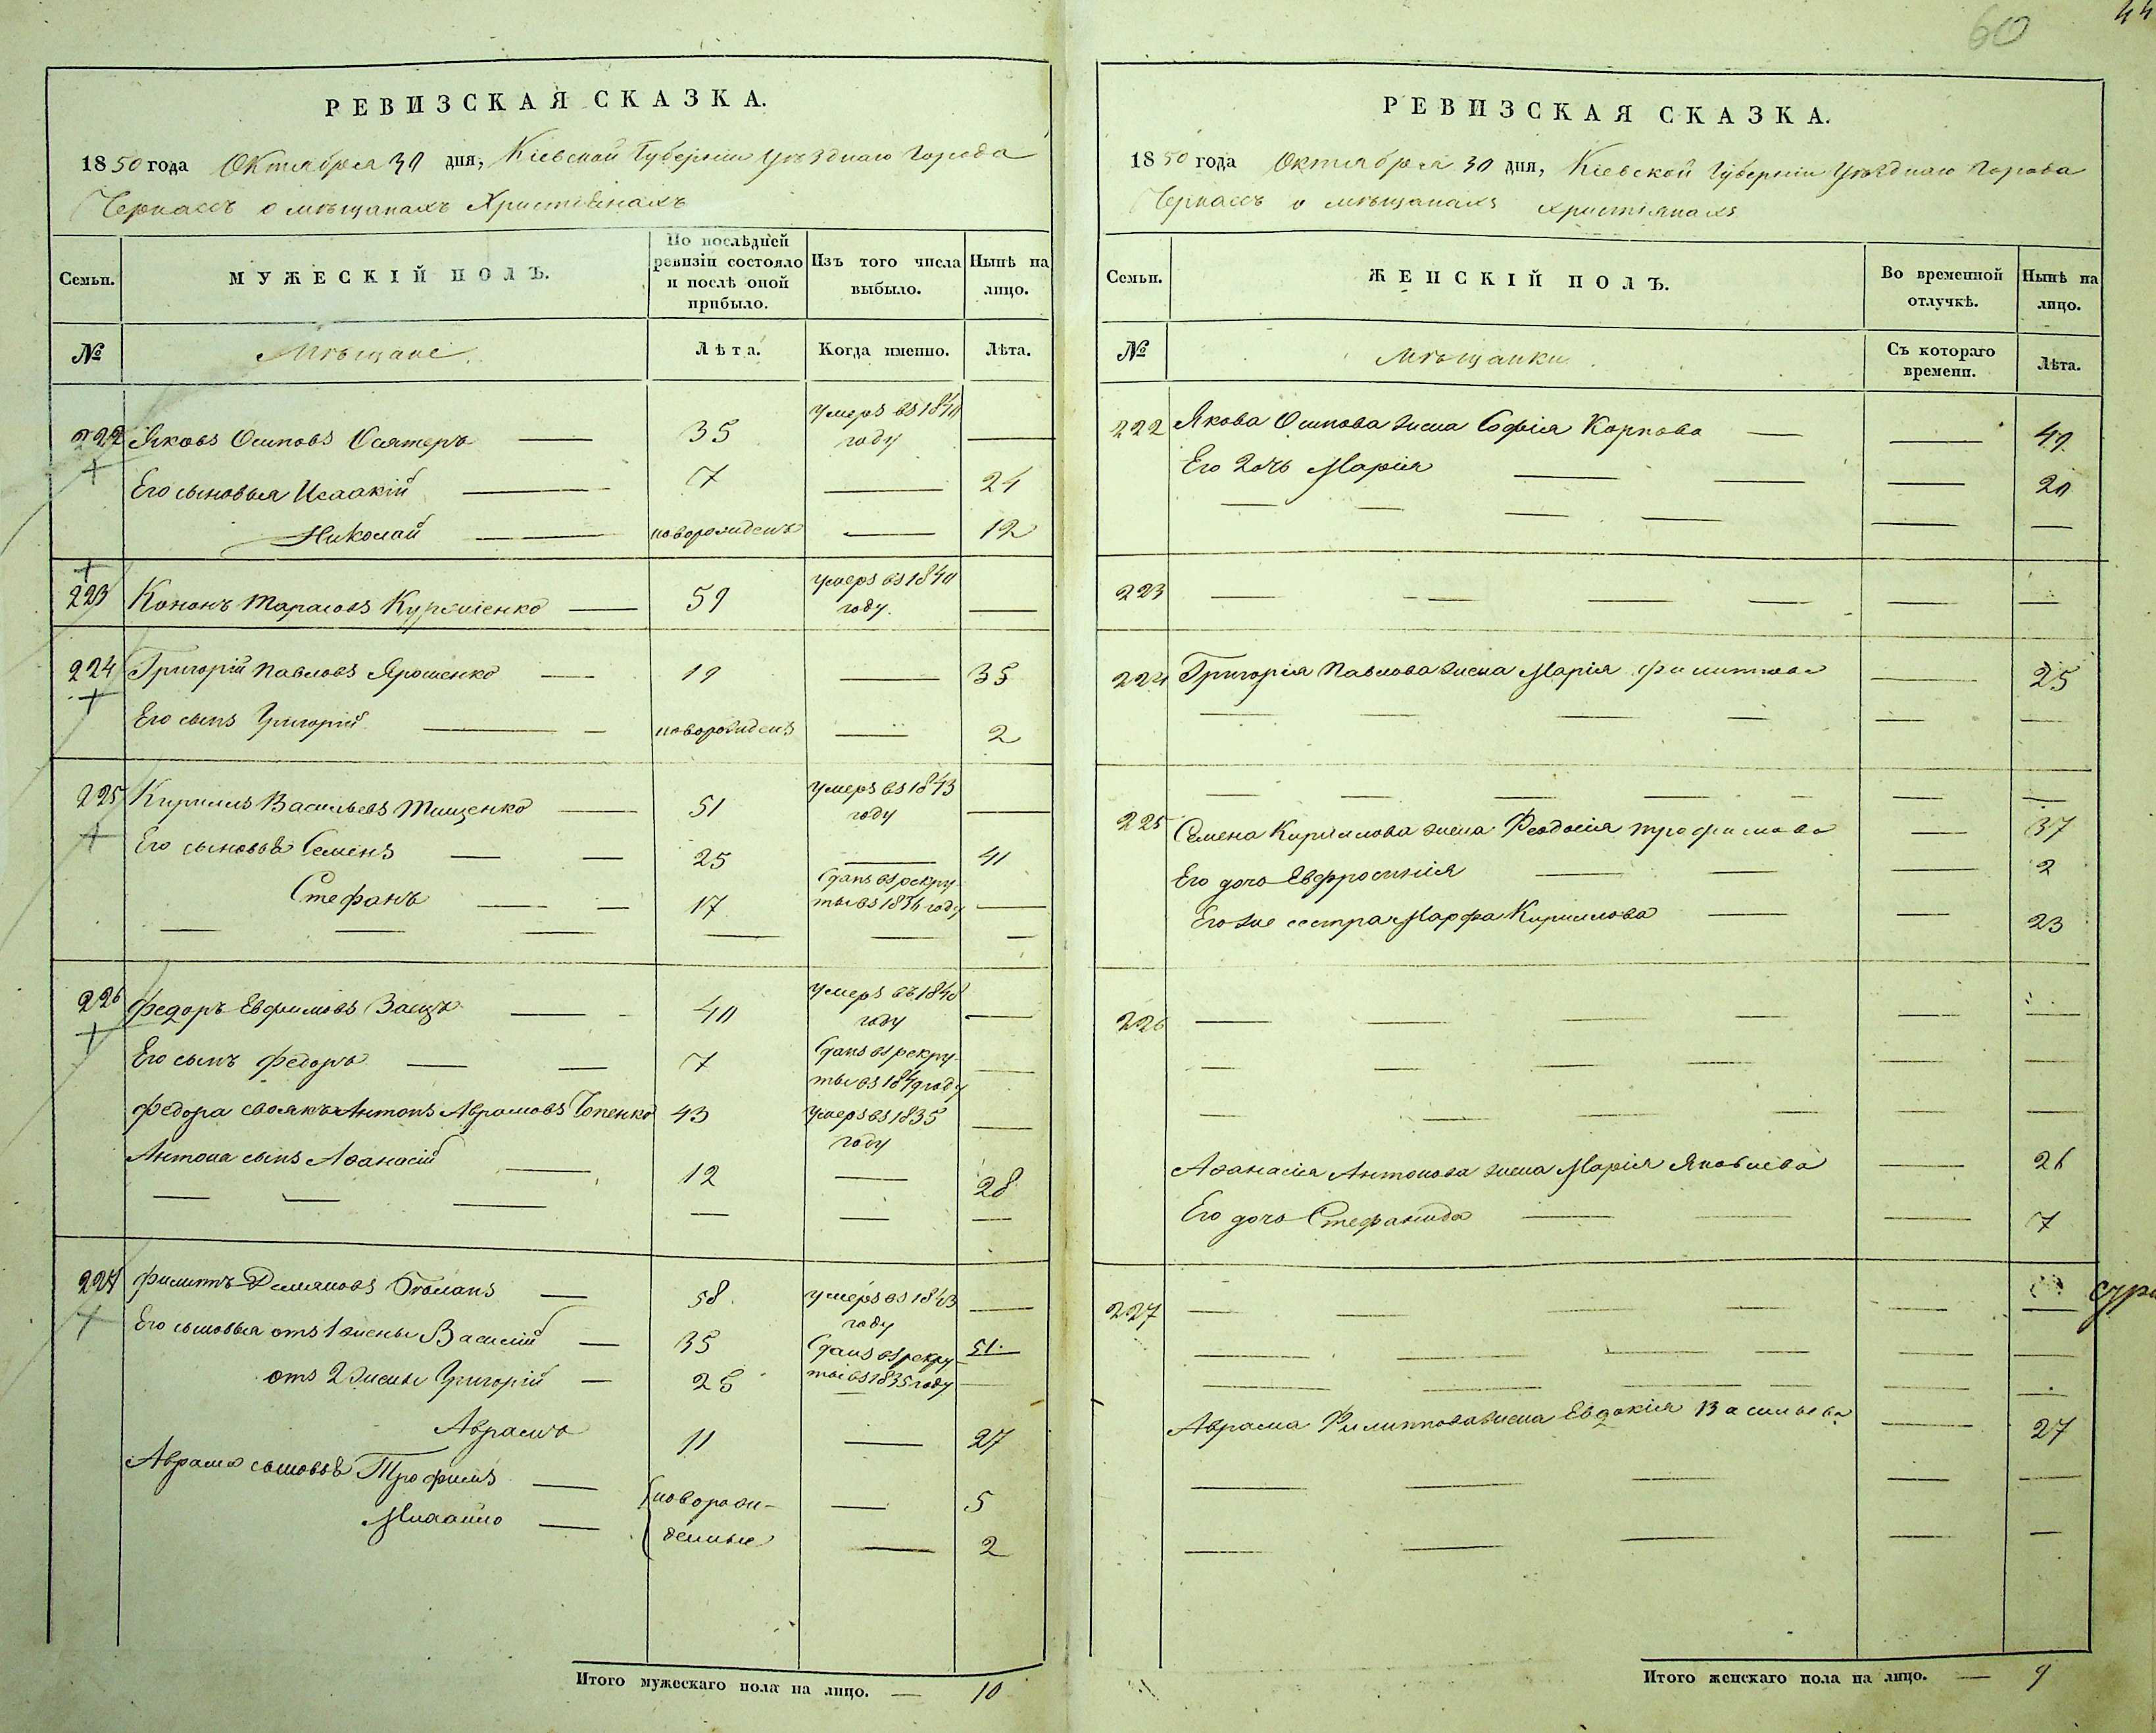 60
44
РЕВИЗСКАЯ СКАЗКА.
1850 года Октября 30 дня, Кіевской Губерніи Уѣзднаго Города
Черкассъ о мѣщанахъ Христіянахъ
Семьи.
МУЖЕСКІЙ ПОЛЪ.
По послѣдней ревизіи состояло и послѣ оной прибыло.
Изъ того числа выбыло.
Нынѣ на лицо.
№
Мѣщане
Лѣта.
Когда именно.
Лѣта.
222 Яковъ Осиповъ 35 умеръ въ 1840 году
Его сыновья Исаакій 7 24
Николай новорожденъ 12
223 Кононъ Тарасовъ 59 умеръ въ 1840 году.
224 Григорій Павловъ Ярошенко 19 35
Его сынъ Григорій новорожденъ 2
225 Кирилъ Васильевъ Тищенко 51 умеръ въ 1843 году
Его сыновья Семенъ 25 41
Стефанъ 17 Сданъ въ рекруты въ 1834 году
226 Федоръ Евфимовъ Заецъ 40 умеръ въ 1848 году
Его сынъ Федоръ 7 Сданъ въ рекруты въ 1849 году
Федора своякъ Антонъ Аврамовъ 43 умеръ въ 1835 году
Антона сынъ Аѳанасій 12 28
227 Филиппъ Демяновъ 58 умеръ въ 1843 году
Его сыновья отъ 1 жены Василій 35 51
отъ 2 жены Григорій 25 Сданъ въ рекруты въ 1835 году
Аврамъ 11 27
Аврама сыновья Трофимъ новорожденные 5
Михайло 2
Итого мужескаго пола на лицо. — 10
РЕВИЗСКАЯ СКАЗКА.
1850 года Октября 30 дня, Кіевской Губерніи Уѣзднаго Города
Черкассъ о мѣщанахъ христіянахъ
Семьи.
ЖЕНСКІЙ ПОЛЪ.
Во временной отлучкѣ.
Нынѣ на лицо.
№
Мѣщанки
Съ котораго времени.
Лѣта.
222 Якова Осипова жена Софія Карпова 49
Его дочь Марія 20
223
224 Григорія Павлова жена Марія Филиппова 25
225 Семена Кирилова жена Феодосія Трофимова 37
Его дочь Евфросинія 2
Его же сестра Марфа Кирилова 23
226
Аѳанасія Антонова жена Марія Яковлева 26
Его дочь Стефанида 7
227
Аврама Филиппова жена Евдокія Васильева 27
Итого женскаго пола на лицо. — 9